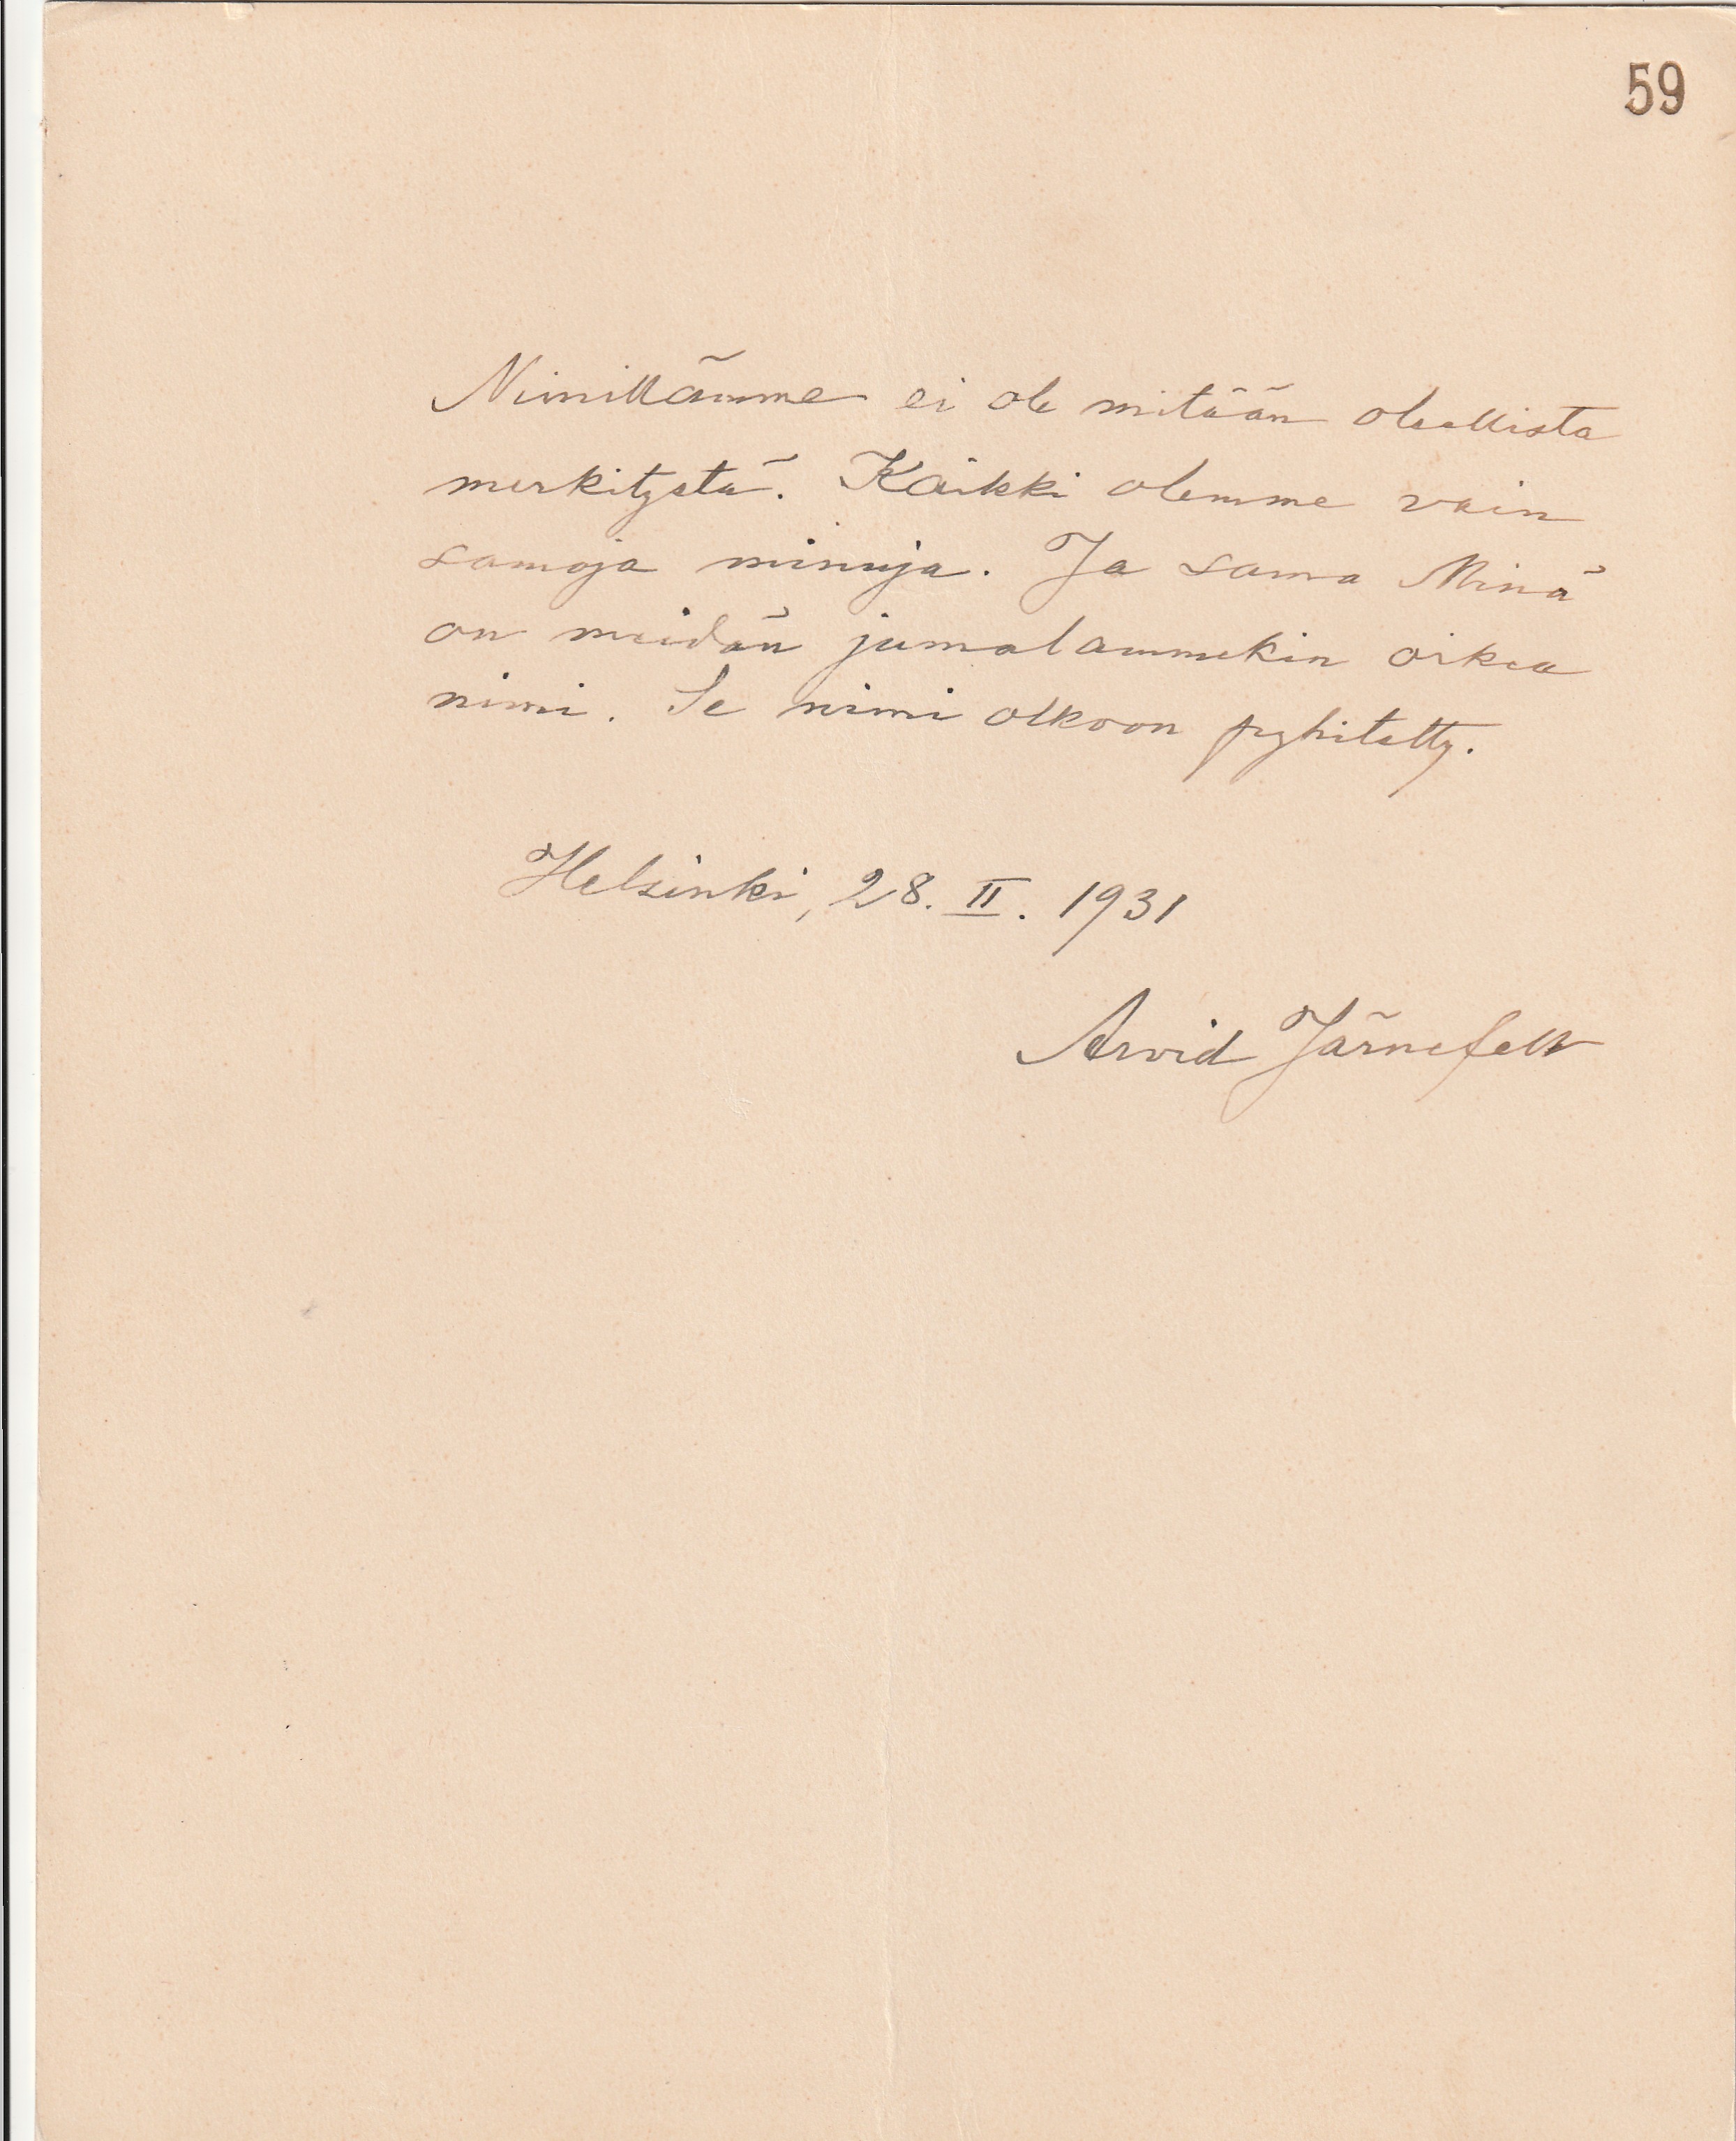 59
Nimillämme ei ole mitään oleellista
merkitystä. Kaikki olemme vain
samoja minuja. Ja sama Minä
on meidän jumalammekin oikea
nimi. Se nimi olkoon pyhitetty.
Helsinki, 28. II. 1931
Arvid Järnefelt